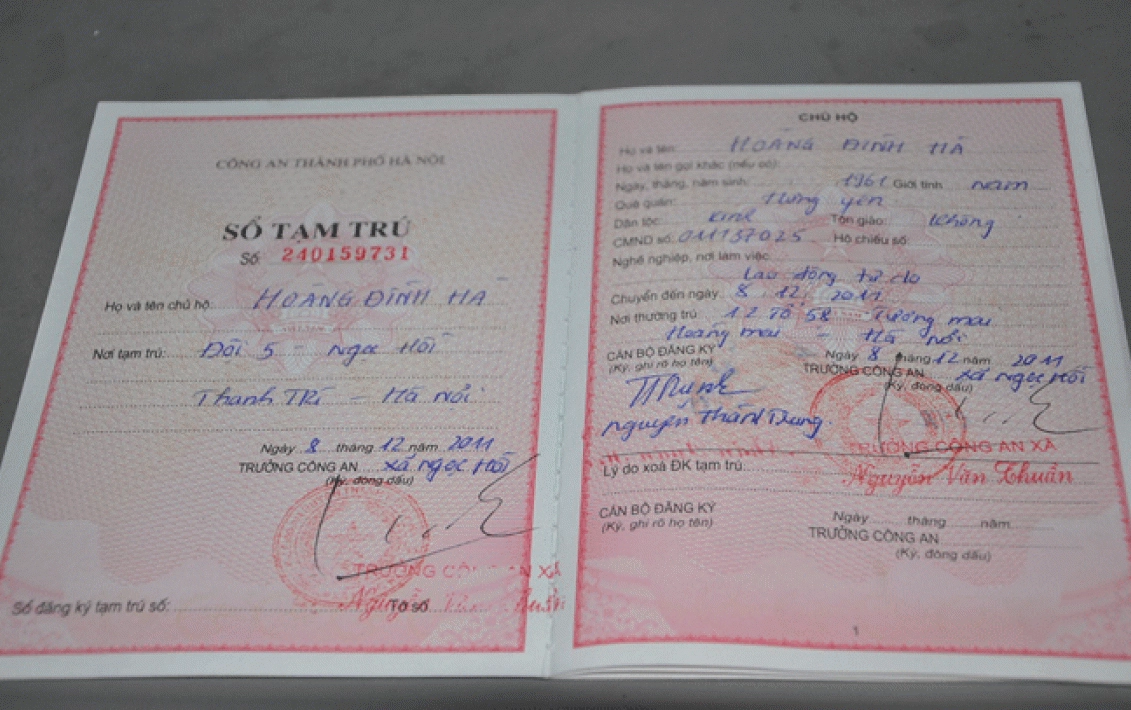 CÔNG AN THÀNH PHỐ HÀ NỘI
SỔ TẠM TRÚ
Số: 240159731
Họ và tên chủ hộ: HOÀNG ĐÌNH HÀ
Nơi tạm trú: Đội 5 - Ngọc Hồi
Thanh Trì - Hà Nội
Ngày 8 tháng 12 năm 2011
TRƯỞNG CÔNG AN xã Ngọc Hồi
(Ký, đóng dấu)
TRƯỞNG CÔNG AN XÃ
Sổ đăng ký tạm trú số: Tờ số
CHỦ HỘ
Họ và tên: HOÀNG ĐÌNH HÀ
Họ và tên gọi khác (nếu có):
Ngày, tháng, năm sinh: 1961 Giới tính: nam
Quê quán: Hưng yên
Dân tộc: Kinh Tôn giáo: Không
CMND số: 011157025 Hộ chiếu số:
Nghề nghiệp, nơi làm việc:
Lao động tự do
Chuyển đến ngày: 8.12.2011
Nơi thường trú: 12 Tổ 58 Tương mai
Hoàng mai - Hà nội
CÁN BỘ ĐĂNG KÝ
(Ký, ghi rõ họ tên)
Ngày 8 tháng 12 năm 2011
TRƯỞNG CÔNG AN xã ngọc Hồi
(Ký, đóng dấu)
nguyễn Thành Trung.
TRƯỞNG CÔNG AN XÃ
Nguyễn Văn Thuần
Lý do xoá ĐK tạm trú:
CÁN BỘ ĐĂNG KÝ
(Ký, ghi rõ họ tên)
Ngày tháng năm
TRƯỞNG CÔNG AN
(Ký, đóng dấu)
1